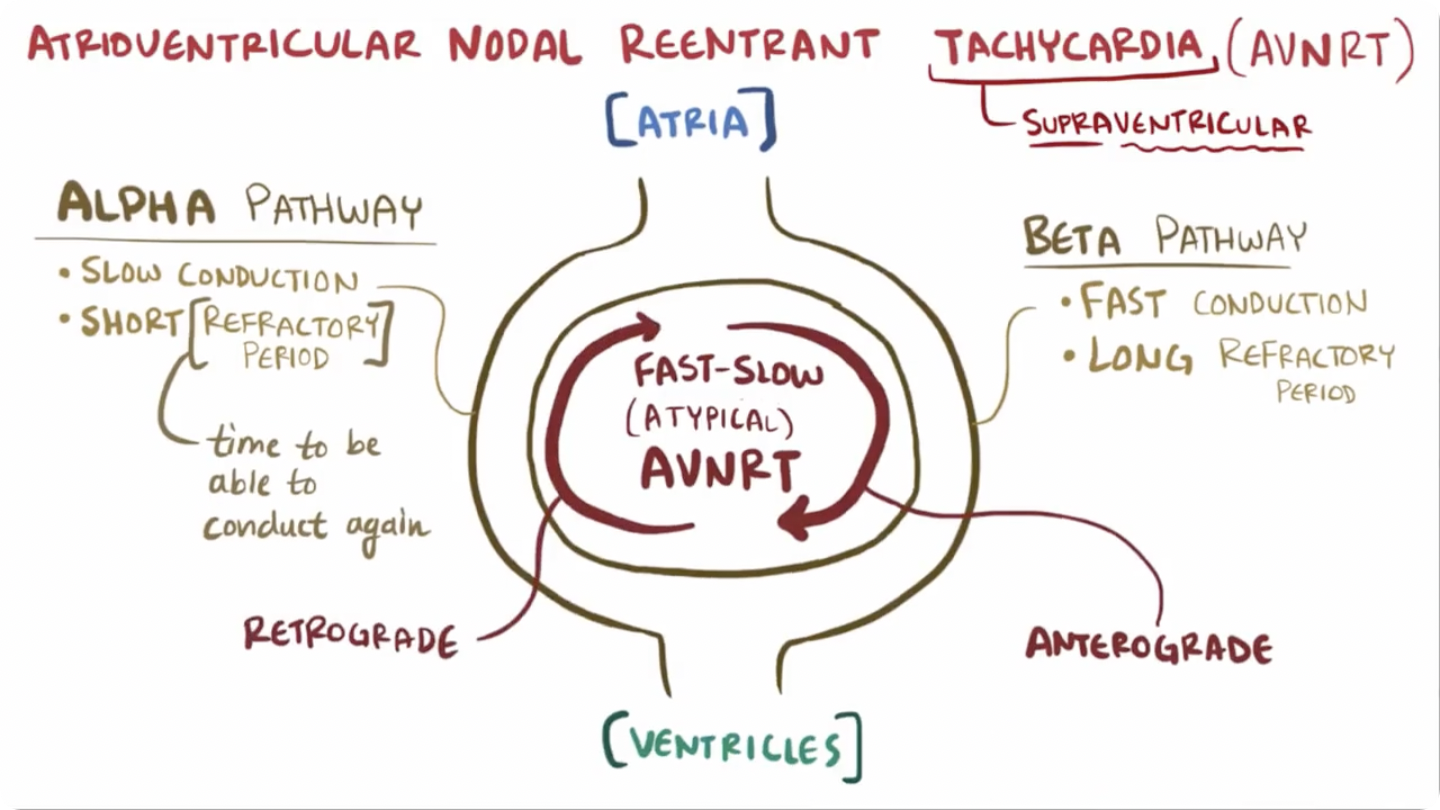 ATRIOVENTRICULAR NODAL REENTRANT TACHYCARDIA (AVNRT)
SUPRAVENTRICULAR
[ATRIA]
ALPHA PATHWAY
• SLOW CONDUCTION
• SHORT [REFRACTORY
PERIOD]
time to be
able to
conduct again
BETA PATHWAY
• FAST CONDUCTION
• LONG REFRACTORY
PERIOD
FAST-SLOW
(ATYPICAL)
AVNRT
RETROGRADE
ANTEROGRADE
[VENTRICLES]